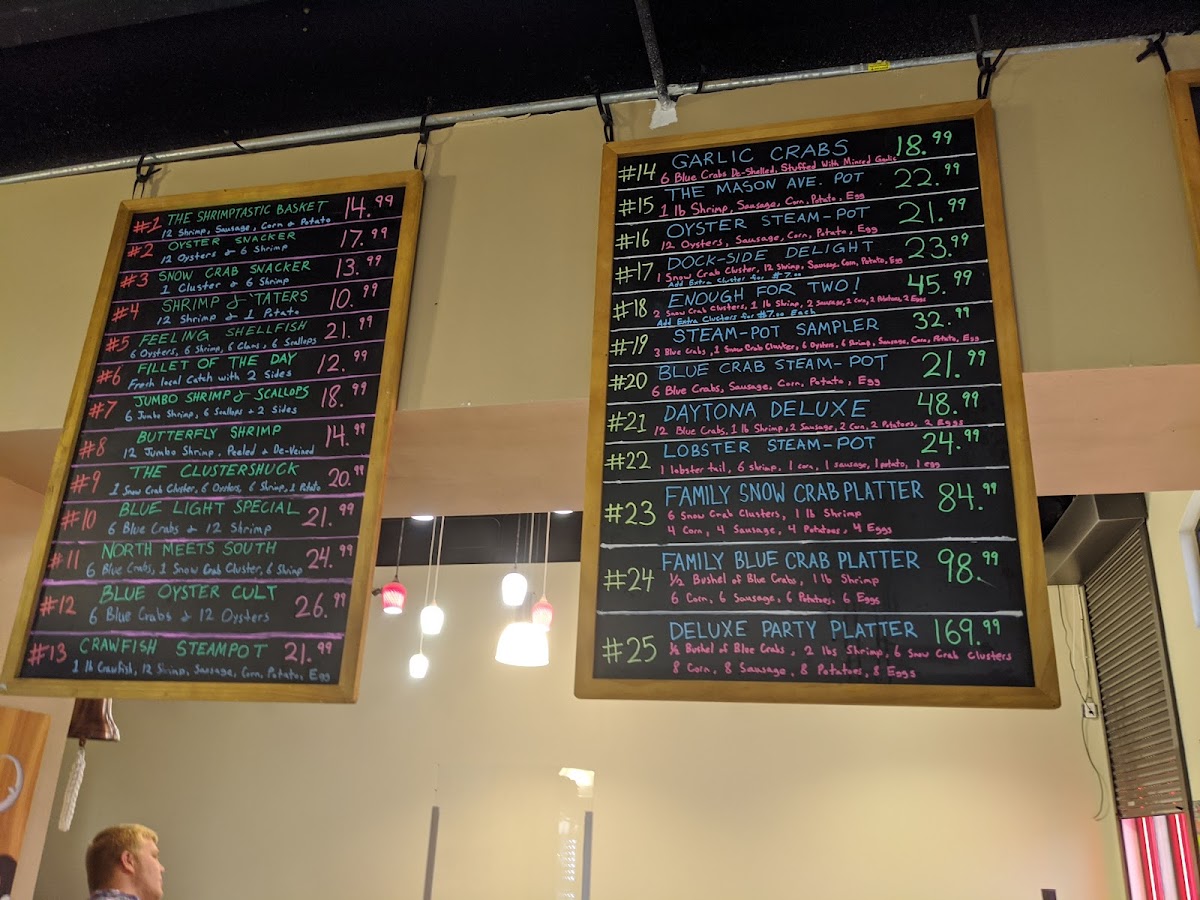 #1 THE SHRIMPTASTIC BASKET 14.99
12 Shrimp, Sausage, Corn & Potato
#2 OYSTER SNACKER 17.99
12 Oysters & 6 Shrimp
#3 SNOW CRAB SNACKER 13.99
1 Cluster & 6 Shrimp
#4 SHRIMP & 'TATERS 10.99
12 Shrimp & 1 Potato
#5 FEELING SHELLFISH 21.99
6 Oysters, 6 Shrimp, 6 Clams, 6 Scallops
#6 FILLET OF THE DAY 12.99
Fresh local Catch with 2 Sides
#7 JUMBO SHRIMP & SCALLOPS 18.99
6 Jumbo Shrimp, 6 Scallops + 2 Sides
#8 BUTTERFLY SHRIMP 14.99
12 Jumbo Shrimp, Peeled & De-Veined
#9 THE CLUSTERSHUCK 20.99
1 Snow Crab Cluster, 6 Oysters, 6 Shrimp, 1 Potato
#10 BLUE LIGHT SPECIAL 21.99
6 Blue Crabs & 12 Shrimp
#11 NORTH MEETS SOUTH 24.99
6 Blue Crabs, 1 Snow Crab Cluster, 6 Shrimp
#12 BLUE OYSTER CULT 26.99
6 Blue Crabs & 12 Oysters
#13 CRAWFISH STEAMPOT 21.99
1 lb Crawfish, 12 Shrimp, Sausage, Corn, Potato, Egg
#14 GARLIC CRABS 18.99
6 Blue Crabs De-Shelled, Stuffed With Minced Garlic
#15 THE MASON AVE. POT 22.99
1 lb Shrimp, Sausage, Corn, Potato, Egg
#16 OYSTER STEAM-POT 21.99
12 Oysters, Sausage, Corn, Potato, Egg
#17 DOCK-SIDE DELIGHT 23.99
1 Snow Crab Cluster, 12 Shrimp, Sausage, Corn, Potato, Egg
Add Extra Cluster for $7.00
#18 ENOUGH FOR TWO! 45.99
2 Snow Crab Clusters, 1 lb Shrimp, 2 Sausage, 2 Corn, 2 Potatoes, 2 Eggs
Add Extra Clusters for $7.00 Each
#19 STEAM-POT SAMPLER 32.99
3 Blue Crabs, 1 Snow Crab Cluster, 6 Oysters, 6 Shrimp, Sausage, Corn, Potato, Egg
#20 BLUE CRAB STEAM-POT 21.99
6 Blue Crabs, Sausage, Corn, Potato, Egg
#21 DAYTONA DELUXE 48.99
12 Blue Crabs, 1 lb Shrimp, 2 Sausage, 2 Corn, 2 Potatoes, 2 Eggs
#22 LOBSTER STEAM-POT 24.99
1 lobster tail, 6 shrimp, 1 corn, 1 sausage, 1 potato, 1 egg
#23 FAMILY SNOW CRAB PLATTER 84.99
6 Snow Crab Clusters, 1 lb Shrimp
4 Corn, 4 Sausage, 4 Potatoes, 4 Eggs
#24 FAMILY BLUE CRAB PLATTER 98.99
1/2 Bushel of Blue Crabs, 1 lb Shrimp
6 Corn, 6 Sausage, 6 Potatoes, 6 Eggs
#25 DELUXE PARTY PLATTER 169.99
Bushel of Blue Crabs, 2 lbs Shrimp, 6 Snow Crab Clusters
8 Corn, 8 Sausage, 8 Potatoes, 8 Eggs